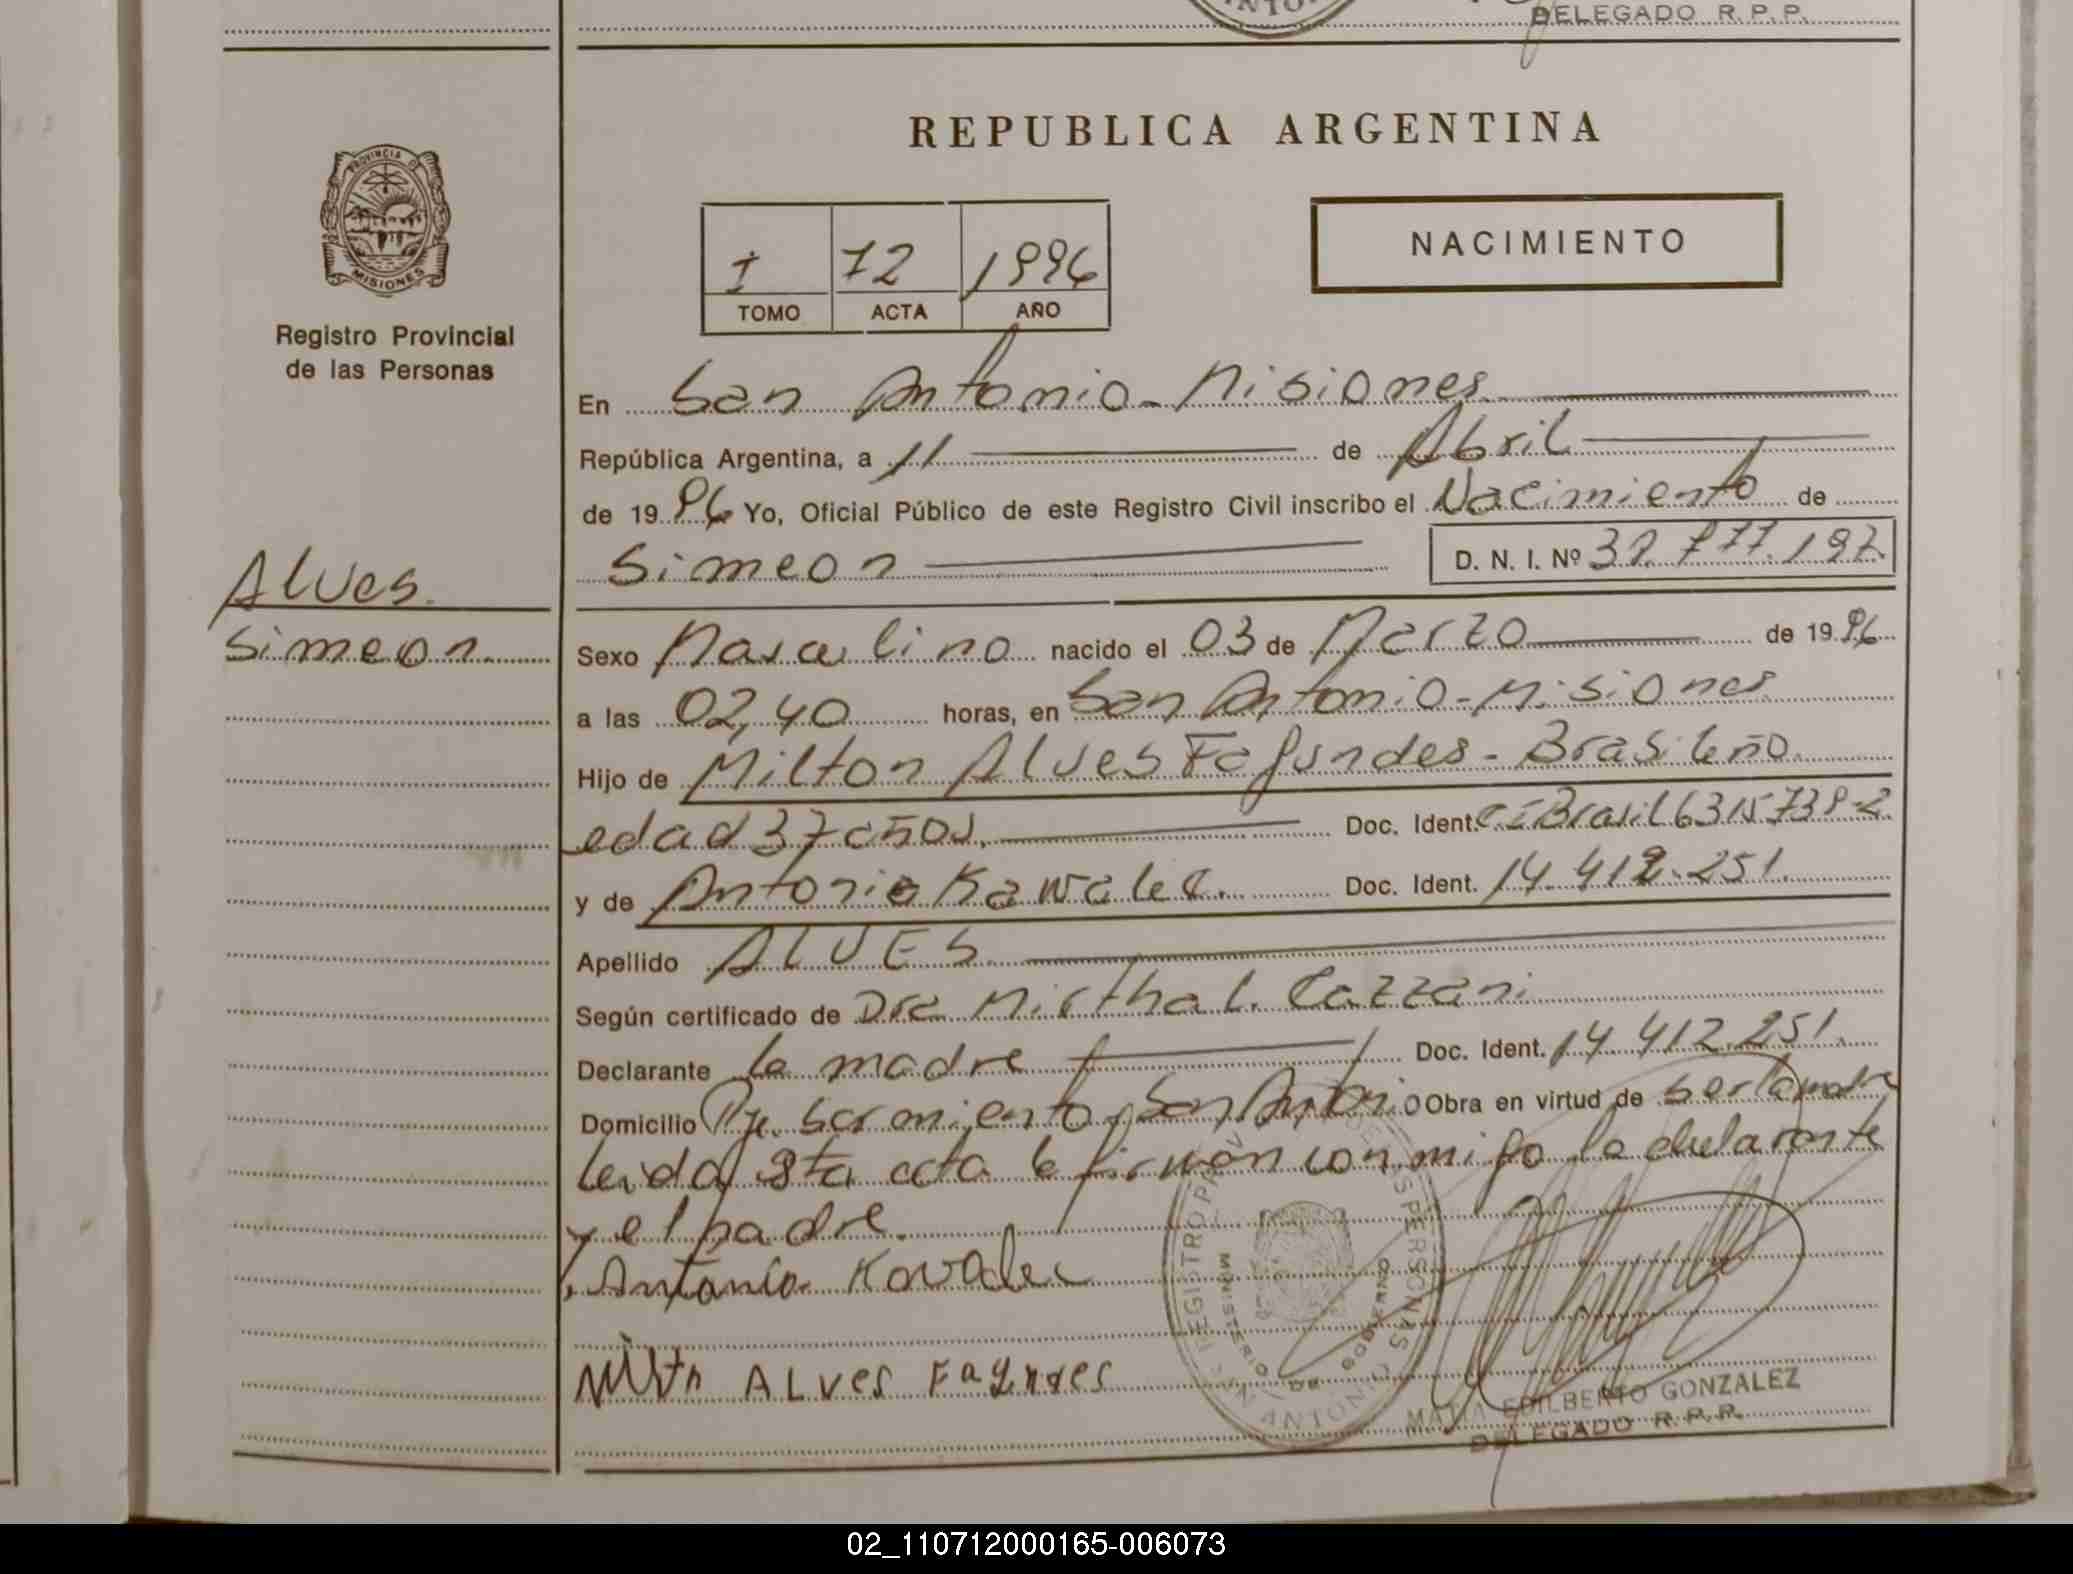 DELEGADO R.P.P.
REPUBLICA ARGENTINA
PROVINCIA D
MISIONES
Registro Provincial
de las Personas
I 72 1996
TOMO ACTA AÑO
NACIMIENTO
En San Antonio - Misiones
República Argentina, a 11 de Abril
de 1996 Yo, Oficial Público de este Registro Civil inscribo el Nacimiento de
Simeon D. N. I. Nº
Alves
Simeon
Sexo Masculino nacido el 03 de Marzo de 1996
a las 02,40 horas, en San Antonio - Misiones
Hijo de Milton Alves Fagundes - Brasileño
edad 37 años, Doc. Ident. CI Brasil 6315738-2
y de Antonia Kawalec. Doc. Ident. 14.412.251.
Apellido ALVES
Según certificado de Dra Mirtha L. Cazzani
Declarante la madre Doc. Ident. 14.412.251.
Domicilio Pje. Sarmiento, San Antonio Obra en virtud de ser la madre
leida esta acta la firman conmigo la declarante
y el padre.
Antania Kovalec
Miltn ALVES Fagndes
REGISTRO PROV. DE LAS PERSONAS
MINISTERIO DE GOBIERNO
SAN ANTONIO
EDILBERTO GONZALEZ
DELEGADO R.P.P.
02_110712000165-006073